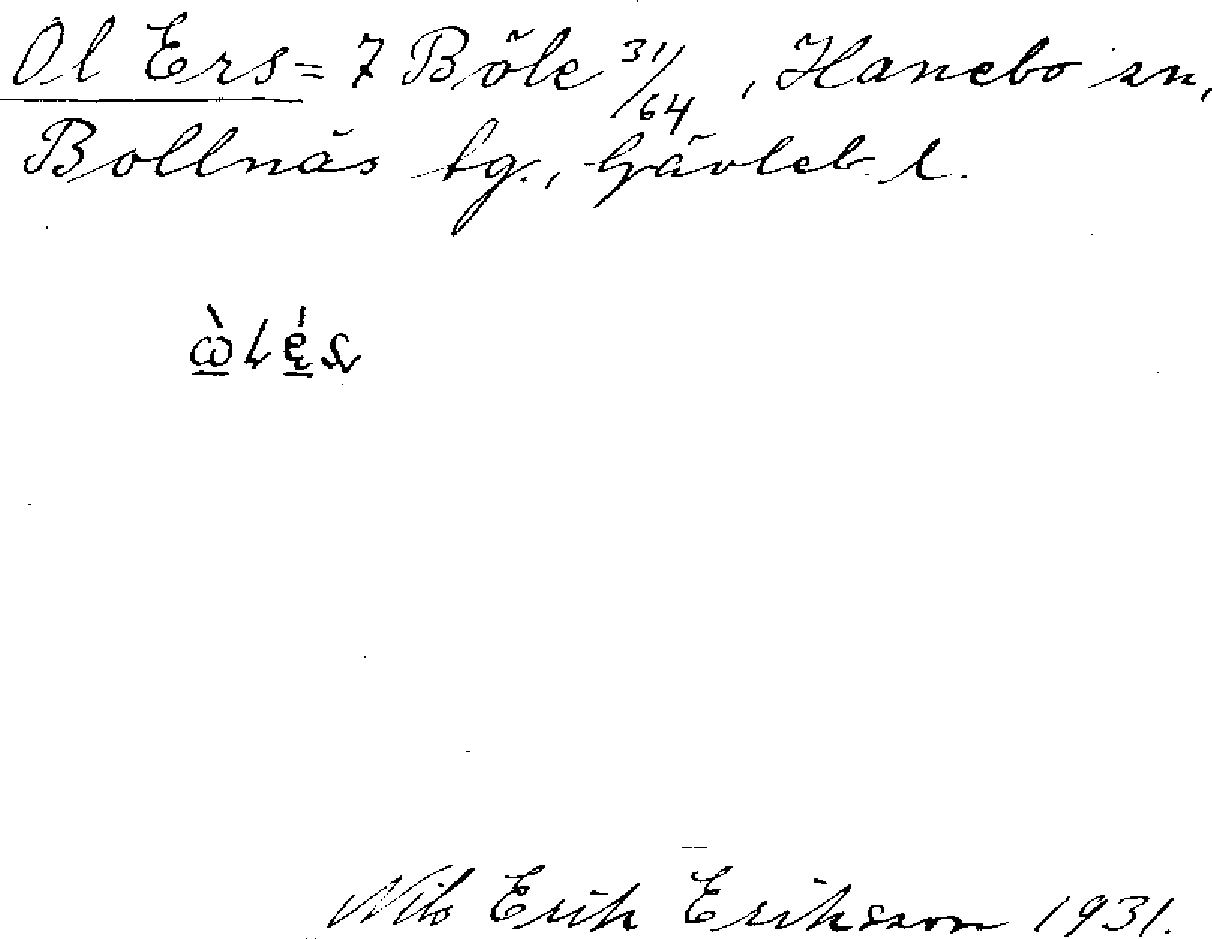 Ol Ers = 7 Böle 31/64, Hanebo sn,
Bollnäs tg., Gävleb. l.
Nils Erik Eriksson 1931.